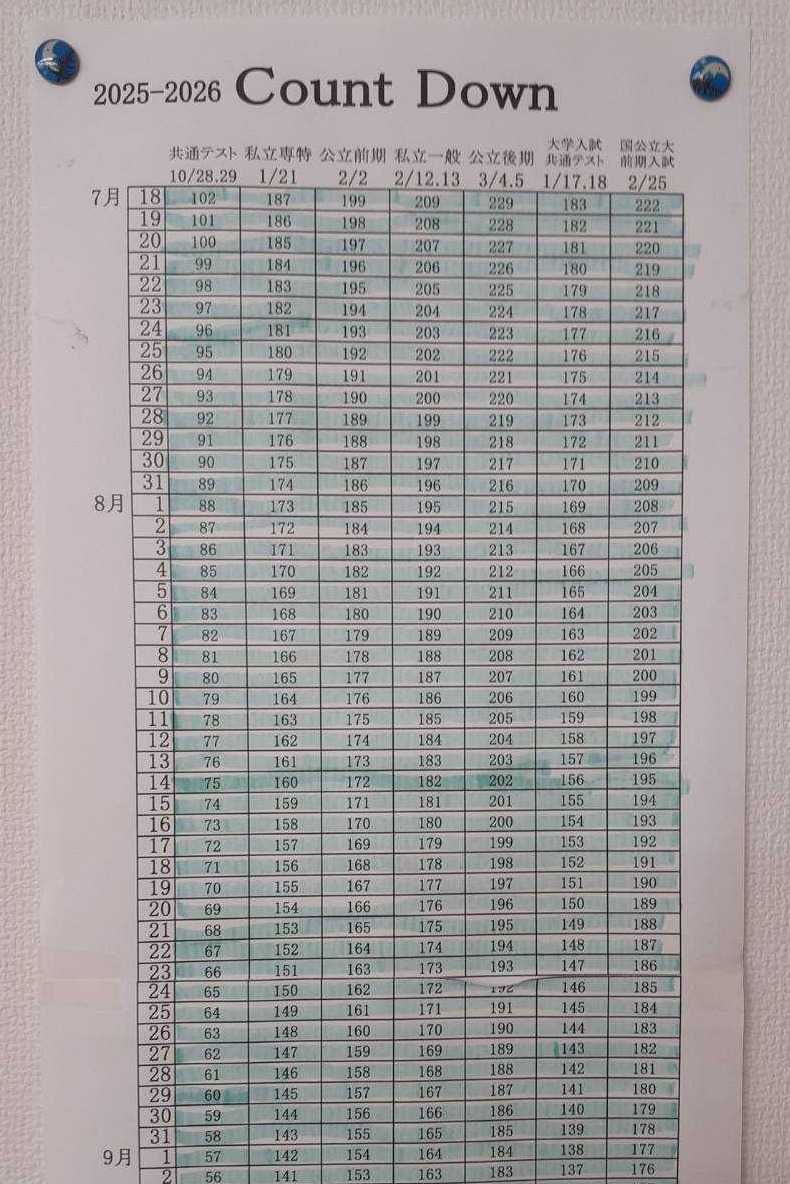 2025-2026 Count Down
共通テスト 私立専特 公立前期 私立一般 公立後期 大学入試 国公立大
共通テスト 前期入試
10/28.29 1/21 2/2 2/12.13 3/4.5 1/17.18 2/25
7月 18 102 187 199 209 229 183 222
19 101 186 198 208 228 182 221
20 100 185 197 207 227 181 220
21 99 184 196 206 226 180 219
22 98 183 195 205 225 179 218
23 97 182 194 204 224 178 217
24 96 181 193 203 223 177 216
25 95 180 192 202 222 176 215
26 94 179 191 201 221 175 214
27 93 178 190 200 220 174 213
28 92 177 189 199 219 173 212
29 91 176 188 198 218 172 211
30 90 175 187 197 217 171 210
31 89 174 186 196 216 170 209
8月 1 88 173 185 195 215 169 208
2 87 172 184 194 214 168 207
3 86 171 183 193 213 167 206
4 85 170 182 192 212 166 205
5 84 169 181 191 211 165 204
6 83 168 180 190 210 164 203
7 82 167 179 189 209 163 202
8 81 166 178 188 208 162 201
9 80 165 177 187 207 161 200
10 79 164 176 186 206 160 199
11 78 163 175 185 205 159 198
12 77 162 174 184 204 158 197
13 76 161 173 183 203 157 196
14 75 160 172 182 202 156 195
15 74 159 171 181 201 155 194
16 73 158 170 180 200 154 193
17 72 157 169 179 199 153 192
18 71 156 168 178 198 152 191
19 70 155 167 177 197 151 190
20 69 154 166 176 196 150 189
21 68 153 165 175 195 149 188
22 67 152 164 174 194 148 187
23 66 151 163 173 193 147 186
24 65 150 162 172 192 146 185
25 64 149 161 171 191 145 184
26 63 148 160 170 190 144 183
27 62 147 159 169 189 143 182
28 61 146 158 168 188 142 181
29 60 145 157 167 187 141 180
30 59 144 156 166 186 140 179
31 58 143 155 165 185 139 178
9月 1 57 142 154 164 184 138 177
2 56 141 153 163 183 137 176